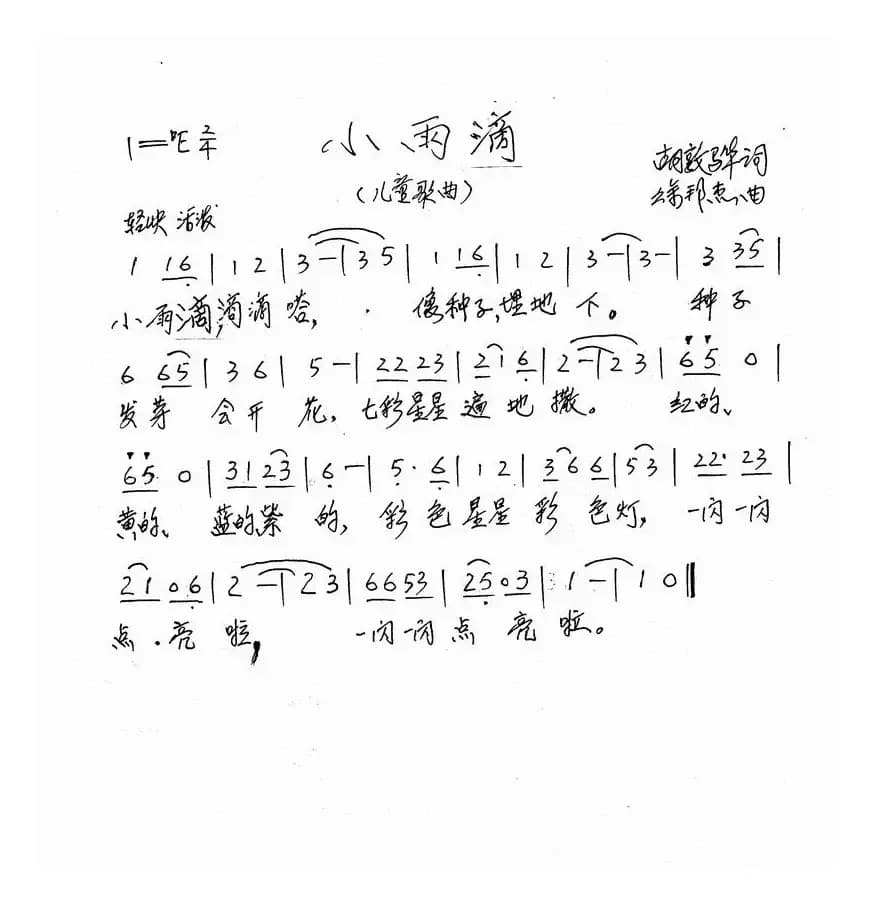 小雨滴
1=♭E 2/4
(儿童歌曲)
胡敦骅词
徐邦杰曲
轻快 活泼
1 16 | 1 2 | 3 - | 3 5 | 1 16 | 1 2 | 3 - | 3 - | 3 35 |
小雨滴,滴滴嗒, 像种子,埋地下。 种子
6 65 | 3 6 | 5 - | 22 23 | 21 6 | 2 - | 2 3 | 65 0 |
发芽 会开花, 七彩星星遍地撒。 红的、
65 0 | 31 23 | 6 - | 5· 6 | 1 2 | 36 6 | 53 | 22· 23 |
黄的、蓝的紫的, 彩色星星彩色灯, 一闪一闪
21 06 | 2 - | 2 3 | 66 53 | 25 03 | 1 - | 1 0 ‖
点亮啦, 一闪一闪点亮啦。